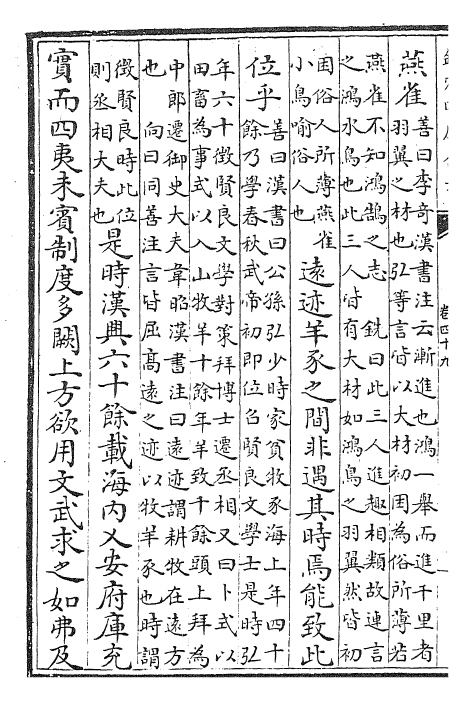 卷四十九
燕雀
善曰李奇漢書注云漸進也鴻一舉而進千里者
羽翼之材也弘等言皆以大材初困為俗所薄若
燕雀不知鴻鵠之志 銑曰此三人進趣相類故連言
之鴻水鳥也此三人皆有大材如鴻鳥之羽翼然皆初
困俗人所薄燕雀
小鳥喻俗人也
遠迹羊豕之間非遇其時焉能致此
位乎
善曰漢書曰公孫弘少時家貧牧豕海上年四十
餘乃學春秋武帝初即位召賢良文學士是時弘
年六十徵賢良文學對策拜博士遷丞相又曰卜式以
田畜為事式以入山牧羊十餘年羊致千餘頭上拜為
中郎遷御史大夫韋昭漢書注曰遠迹謂耕牧在遠方
也 向曰同善注言皆屈高遠之迹以牧羊豕也時謂
徵賢良時此位
則丞相大夫也
是時漢興六十餘載海内乂安府庫充
實而四夷未賓制度多闕上方欲用文武求之如弗及